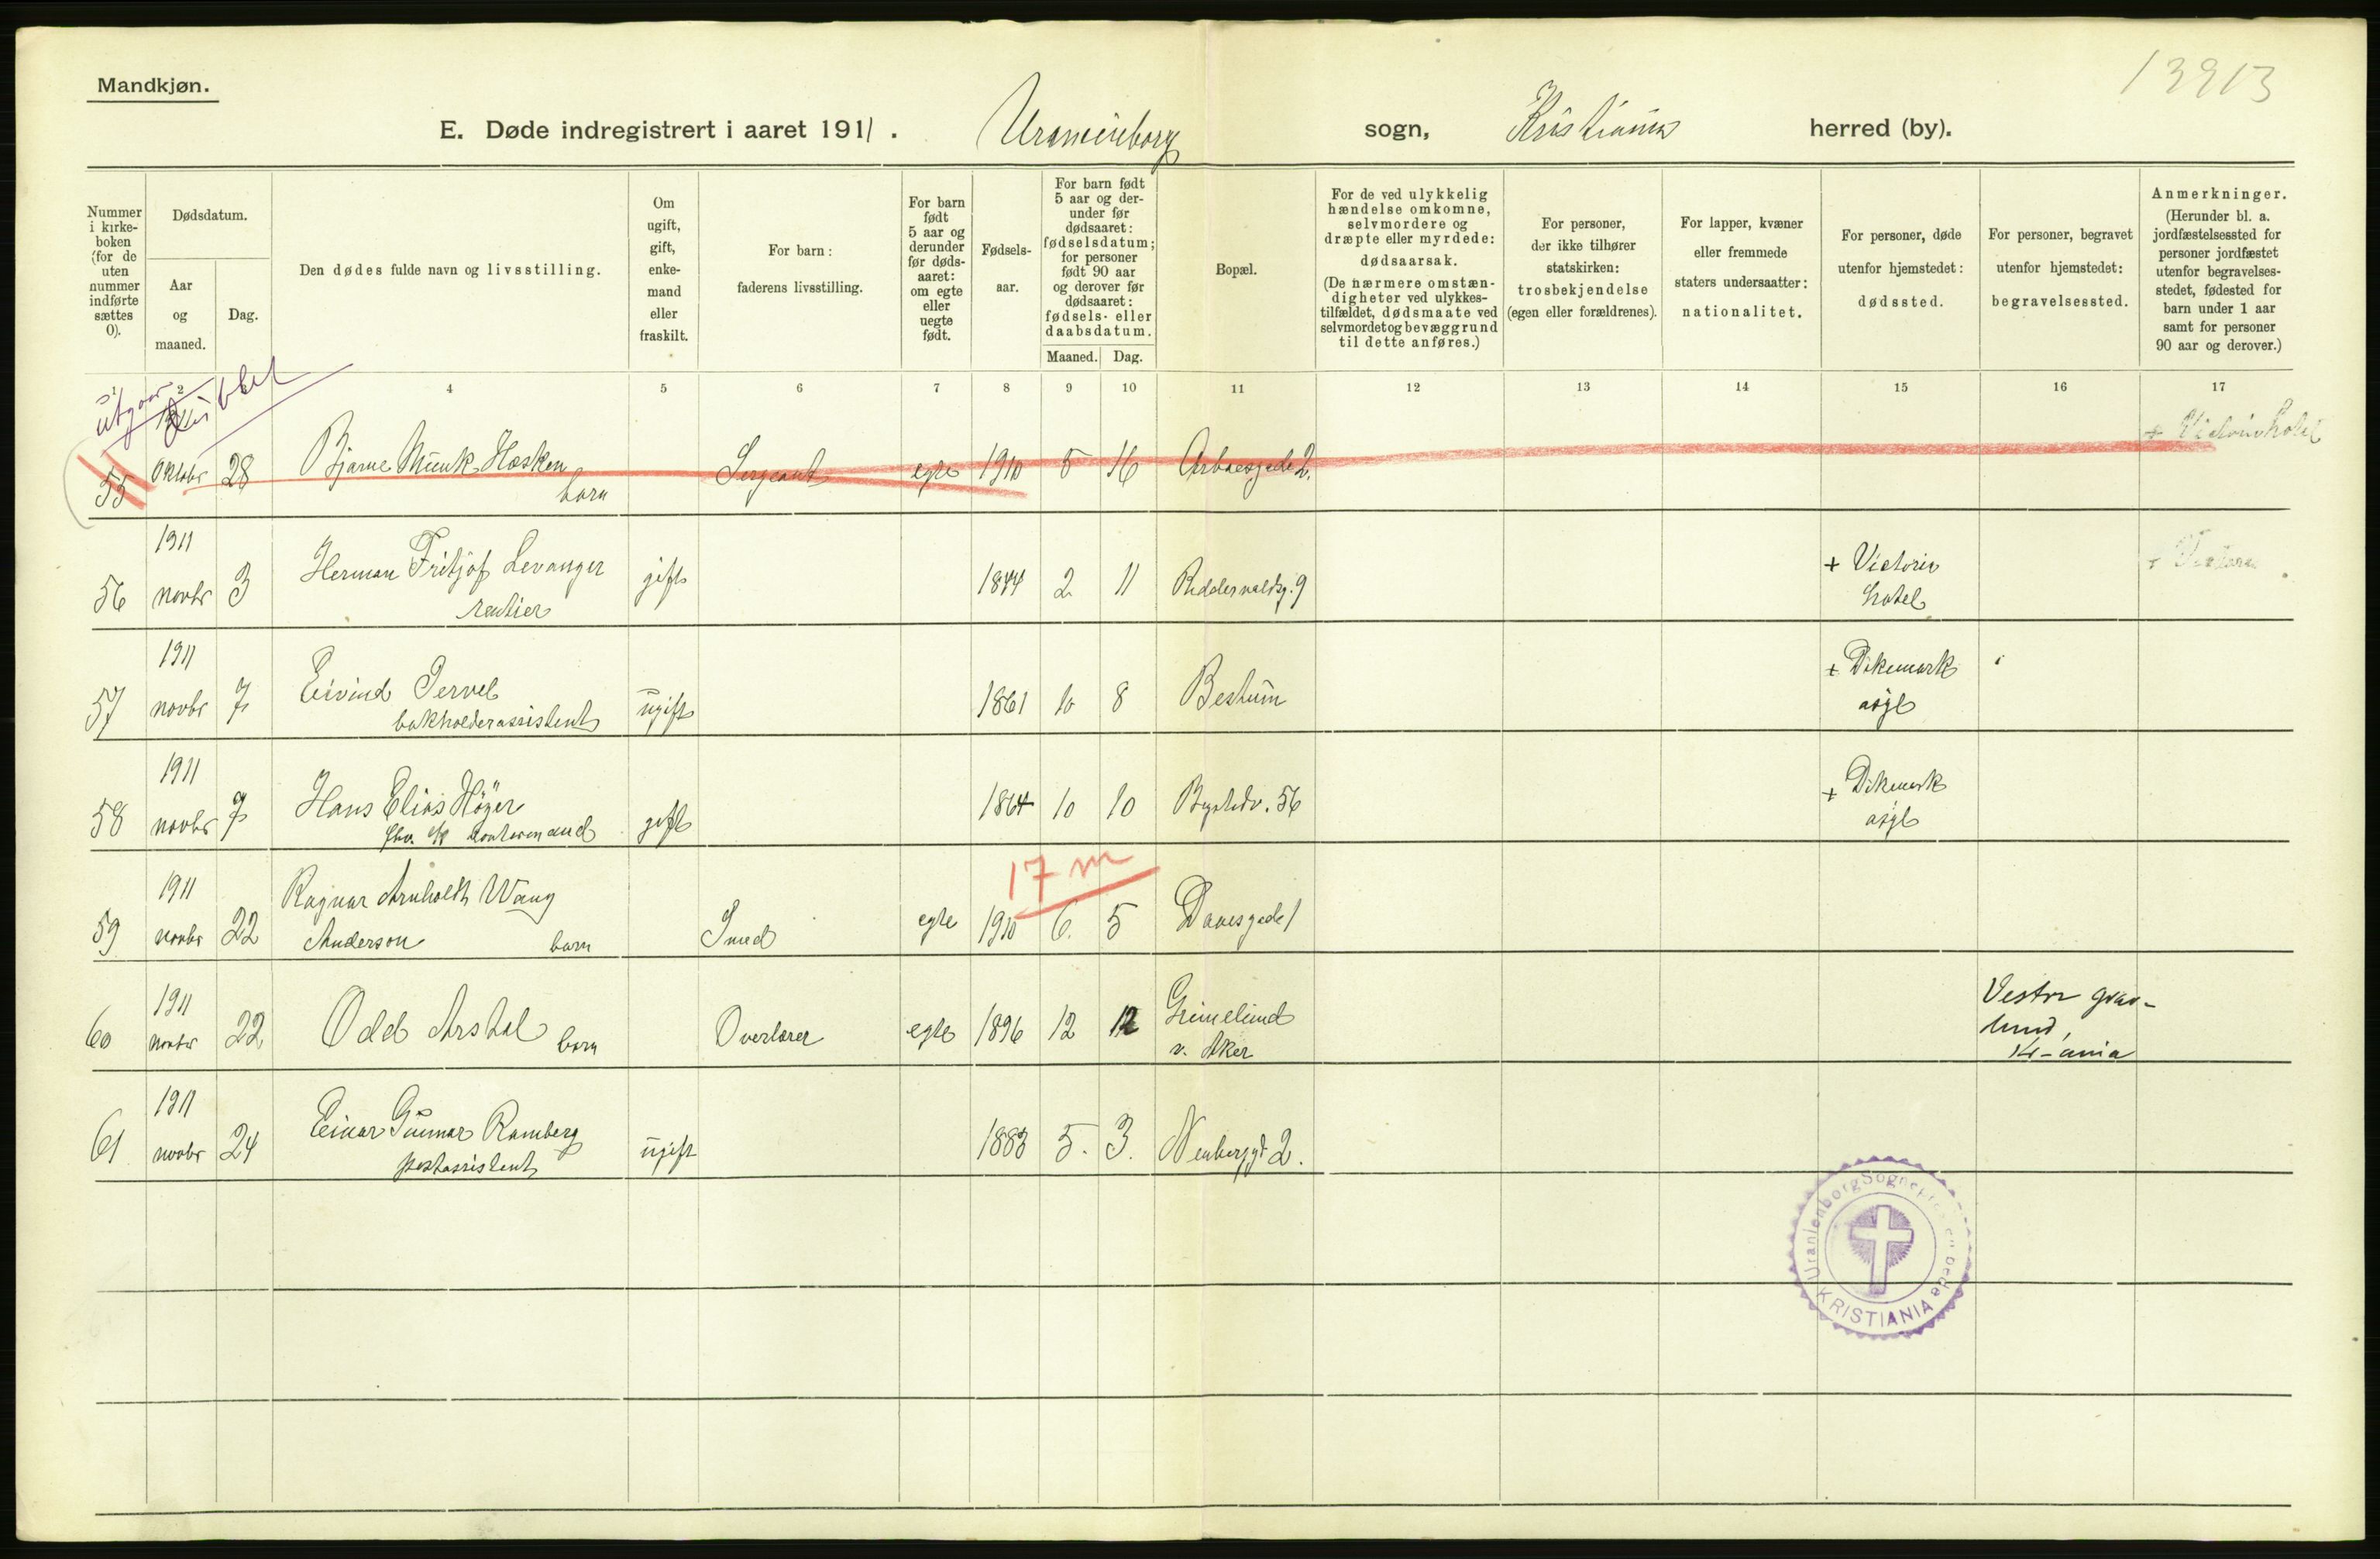 13913
Mandkjøn.
E. Døde indregistrert i aaret 1911. Uranienborg sogn, Kristiania herred (by).
Nummer i kirke-boken (for de uten nummer indførte sættes 0).
Dødsdatum.
Aar og maaned.
Dag.
Den dødes fulde navn og livsstilling.
Om ugift, gift, enke-mand eller fraskilt.
For barn: faderens livsstilling.
For barn født 5 aar og derunder før døds-aaret: om egte eller uegte født.
Fødsels-aar.
For barn født 5 aar og der-under før dødsaaret: fødselsdatum; for personer født 90 aar og derover før dødsaaret: fødsels- eller daabsdatum.
Maaned. Dag.
Bopæl.
For de ved ulykkelig hændelse omkomne, selvmordere og dræpte eller myrdede: dødsaarsak.
(De nærmere omstæn-digheter ved ulykkes-tilfældet, dødsmaate ved selvmord et og bevæggrund til dette anføres.)
For personer, der ikke tilhører statskirken: trosbekjendelse (egen eller forældrenes).
For lapper, kvæner eller fremmede staters undersaatter: nationalitet.
For personer, døde utenfor hjemstedet: dødssted.
For personer, begravet utenfor hjemstedet: begravelsessted.
Anmerkninger.
(Herunder bl. a. jordfæstelsessted for personer jordfæstet utenfor begravelses-stedet, fødested for barn under 1 aar samt for personer 90 aar og derover.)
1 2 4 5 6 7 8 9 10 11 12 13 14 15 16 17
utgaar
55 Oktober 28 Bjarne Munk Hosken barn Sergeant egte 1910 5 16 2. + Victoria hotel
56 1911 novbr 3 Herman Fritjof Levanger rentier gift 1844 2 11 Riddervoldsg. 9 + Victoria hotel + Victoria
57 1911 novbr 7 Eivind Jervel bokholderassistent ugift 1861 10 8 Bestum + Dikemark asyl
58 1911 novbr 7 Hans Elias Höyer gift 1864 10 10 56 + Dikemark asyl
17 m
59 1911 novbr 22 Ragnar Arnholdt Wang Anderson barn Smed egte 1910 6. 5 Daasgade 1
60 1911 novbr 22 Odd Arstal barn Overlærer egte 1896 12 12 Grimelund v. Aker Vestre grav-lund, Kr-ania
61 1911 novbr 24 Einar Gunnar Ramberg postassistent ugift 1883 5. 3. Neuberggt 2.
Uranienborg Sogneprest
KRISTIANIA